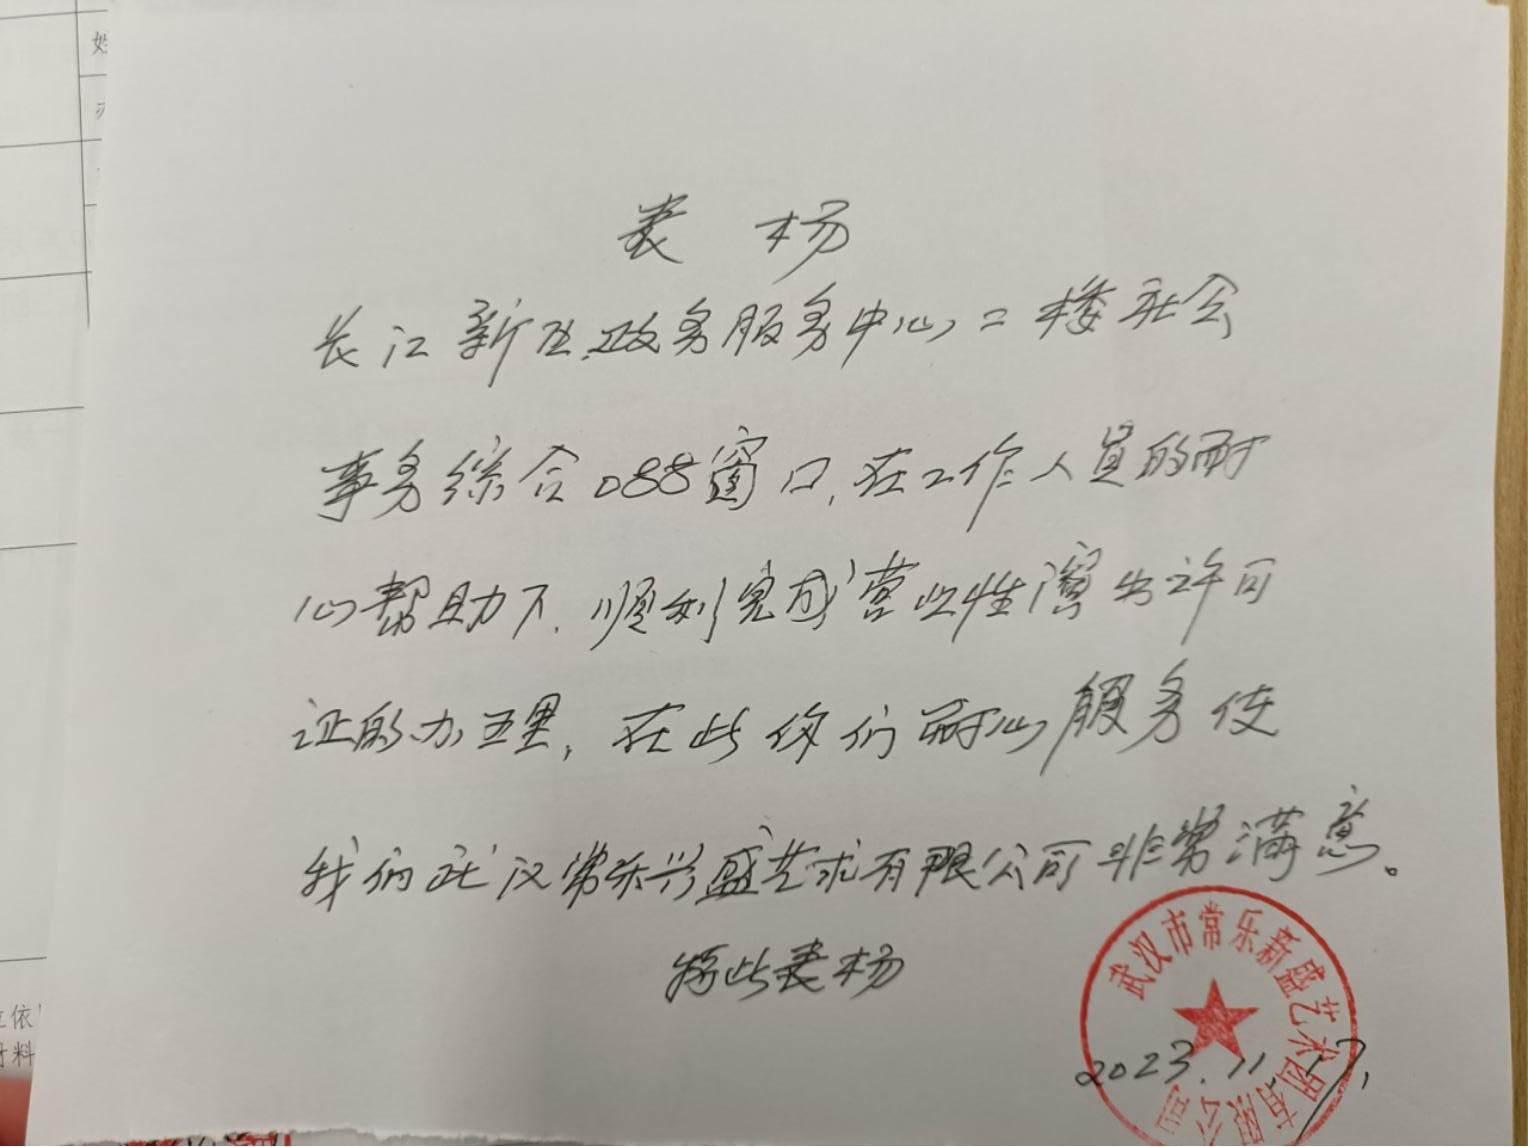 表 杨
长江新区政务服务中心二楼社会
事务综合088窗口,在工作人员的耐
心帮助下.顺利完成营业性演出许可
证的办理,在此你们耐心服务使
我们武汉常乐兴盛艺术有限公司非常满意。
特此表杨
武汉市常乐新盛艺术团有限公司
2023.11.17.
姓
依
材料